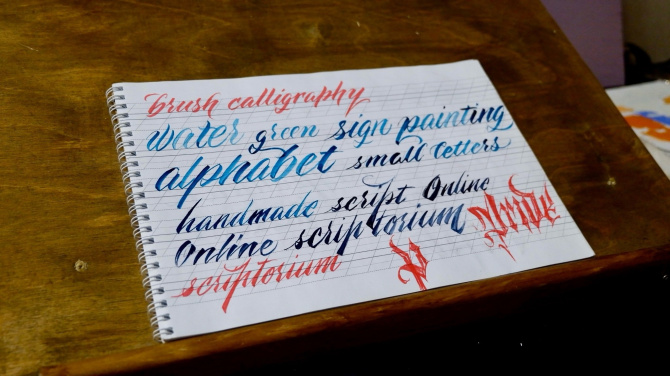 brush calligraphy
water green sign painting
alphabet small letters
handmade script Online
Online scriptorium
scriptorium